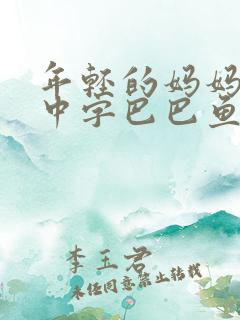 年轻的妈妈
中字巴巴鱼
李玉君
未经同意禁止转载